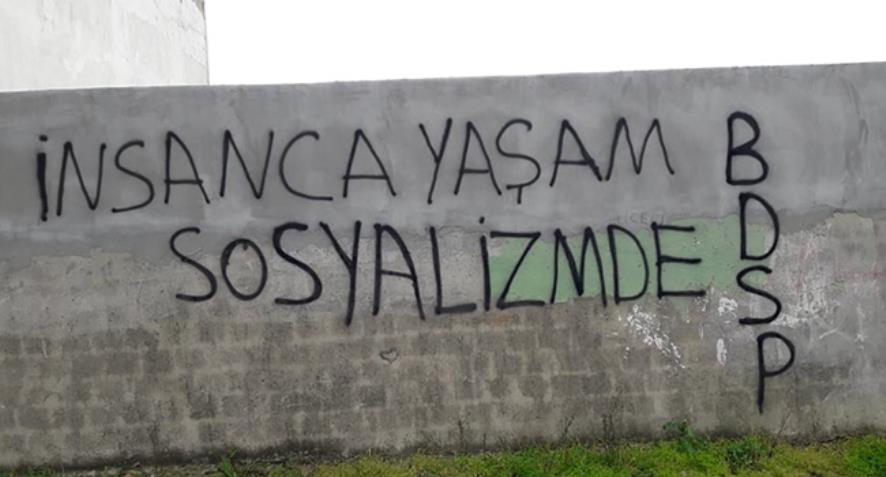 İNSANCA YAŞAM
SOSYALİZMDE
BDSP